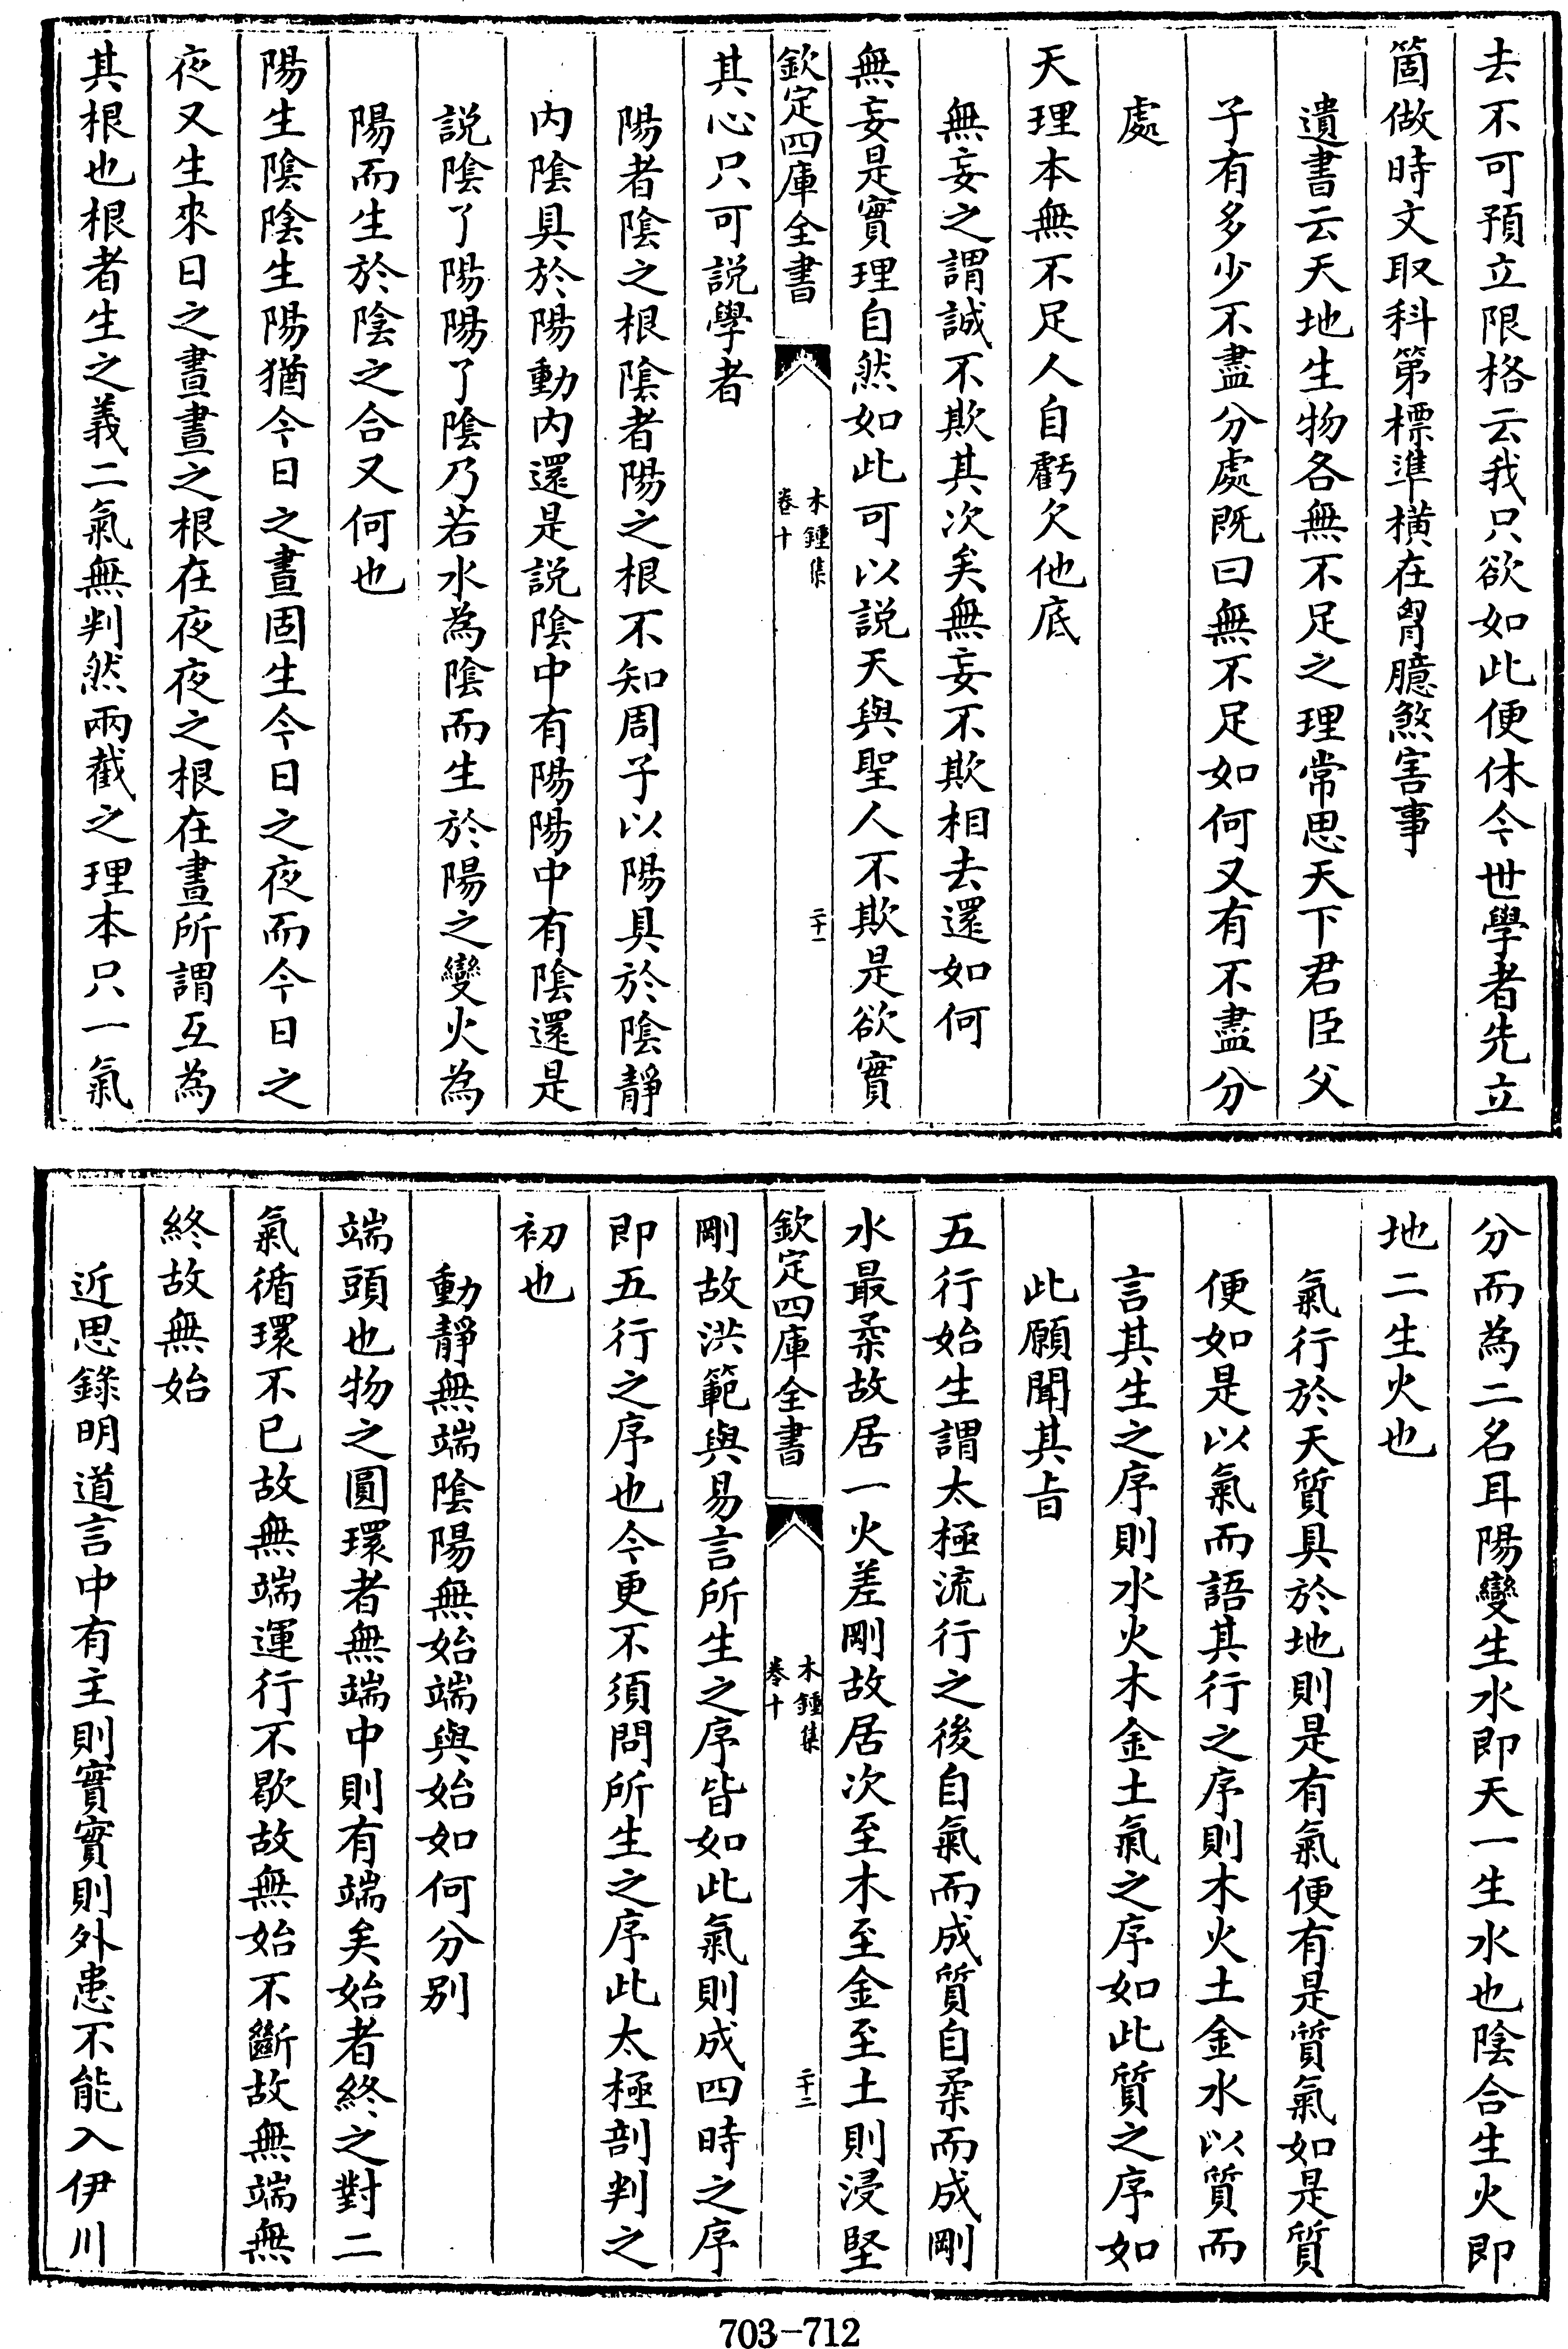 去不可預立限格云我只欲如此便休今世學者先立
箇做時文取科第標準橫在胷臆煞害事
遺書云天地生物各無不足之理常思天下君臣父
子有多少不盡分處既曰無不足如何又有不盡分
處
天理本無不足人自虧欠他底
無妄之謂誠不欺其次矣無妄不欺相去還如何
無妄是實理自然如此可以説天與聖人不欺是欲實
欽定四庫全書
木鍾集
卷十
二十一
其心只可説學者
陽者陰之根陰者陽之根不知周子以陽具於陰靜
内陰具於陽動内還是説陰中有陽陽中有陰還是
説陰了陽陽了陰乃若水為陰而生於陽之變火為
陽而生於陰之合又何也
陽生陰陰生陽猶今日之晝固生今日之夜而今日之
夜又生來日之晝晝之根在夜夜之根在晝所謂互為
其根也根者生之義二氣無判然兩截之理本只一氣
分而為二名耳陽變生水即天一生水也陰合生火即
地二生火也
氣行於天質具於地則是有氣便有是質氣如是質
便如是以氣而語其行之序則木火土金水以質而
言其生之序則水火木金土氣之序如此質之序如
此願聞其㫖
五行始生謂太極流行之後自氣而成質自柔而成剛
水最柔故居一火差剛故居次至木至金至土則浸堅
欽定四庫全書
木鍾集
卷十
二十二
剛故洪範與易言所生之序皆如此氣則成四時之序
即五行之序也今更不須問所生之序此太極剖判之
初也
動靜無端陰陽無始端與始如何分别
端頭也物之圓環者無端中則有端矣始者終之對二
氣循環不已故無端運行不歇故無始不斷故無端無
終故無始
近思錄明道言中有主則實實則外患不能入伊川
703-712